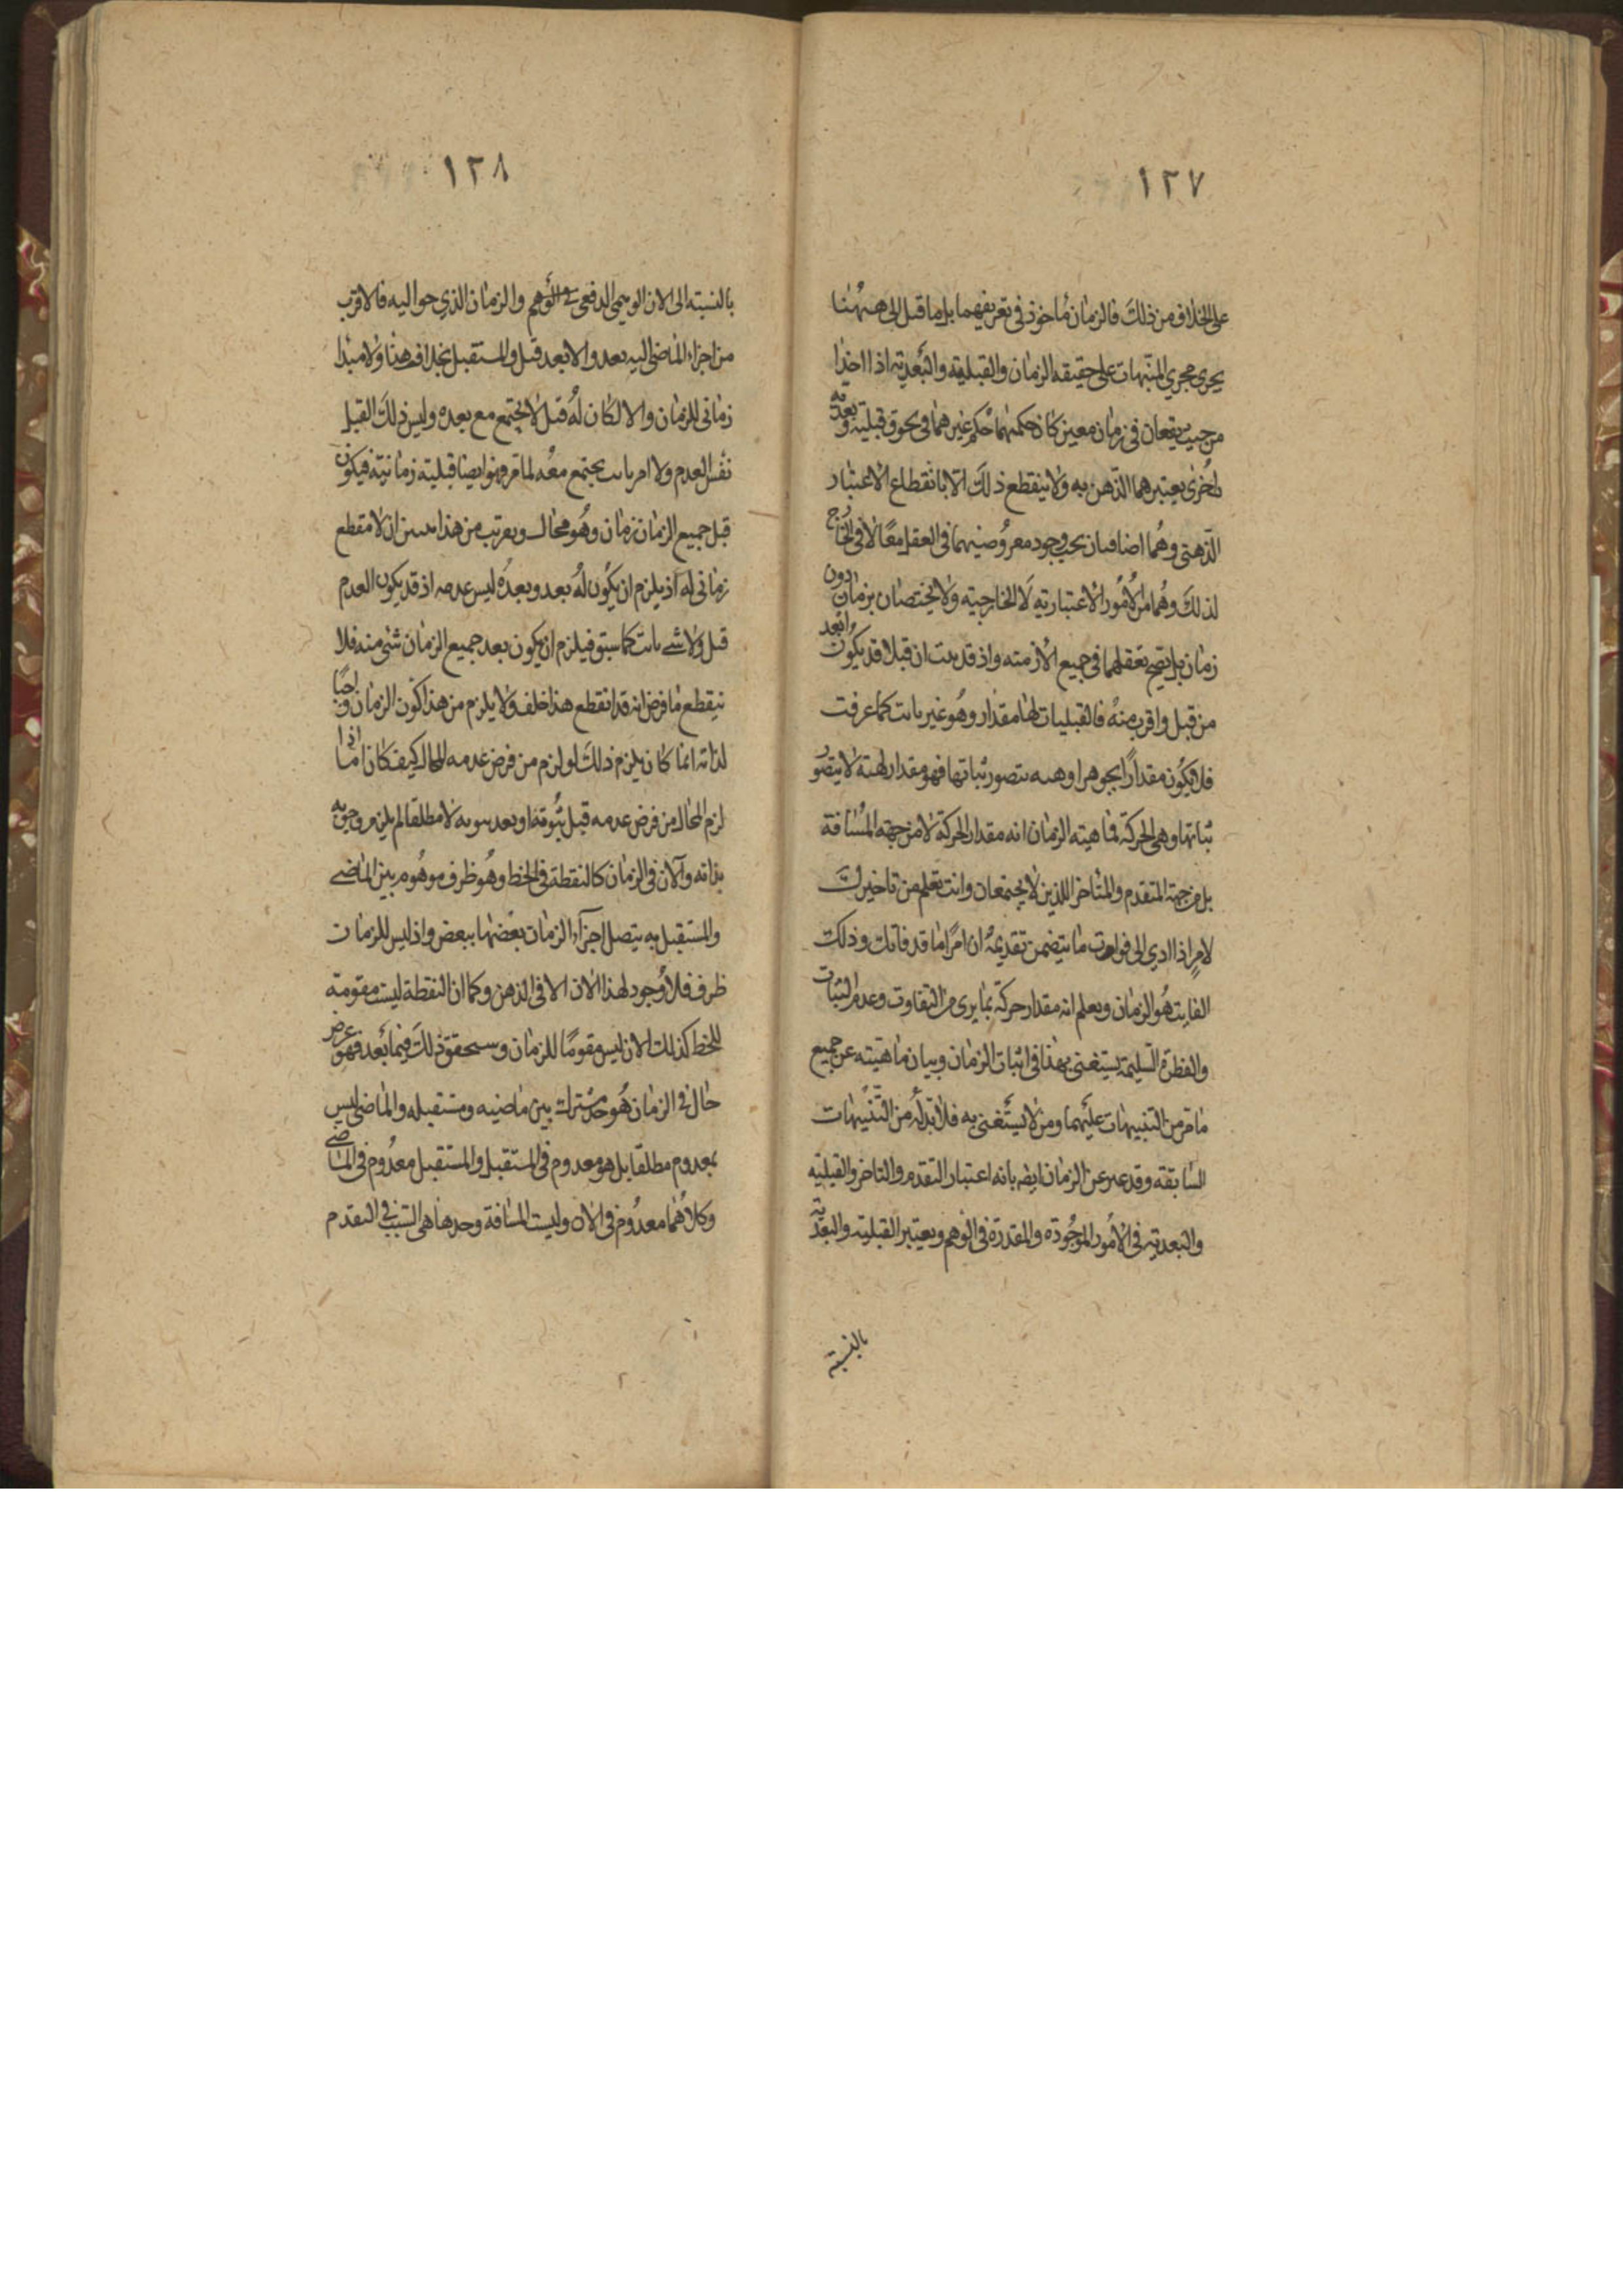 ١٢٧
على الخلاف من ذلك فالزمان مأخوذ في تعريفهما بل ما قيل الى ههنا
يجرى مجرى المنبهات على حقيقة الزمان والقبلية والبعدية اذا اخذا
من حيث يقعان في زمان معين كان حكمهما حكم غيرهما في لحوق قبلية وبعدية
اخرى يعتبرهما الذهن به ولا ينقطع ذلك الا بانقطاع الاعتبار
الذهني وهما اضافتان يجب وجود معروضيهما في العقل معا لا في الخارج
لذلك وهما من الامور الاعتبارية لا الخارجية ولا يختصان بزمان دون
زمان بل يصح تعقلهما في جميع الازمنة واذ قد ثبت ان قبلا قد يكون ابعد
من قبل واقرب منه فالقبليات لها مقدار وهو غير ثابت كما عرفت
فلا يكون مقدارا لجوهر او هيئة يتصور ثباتها فهو مقدار لهيئة لا يتصور
ثباتها وهي الحركة فماهية الزمان انه مقدار الحركة لا من جهة المسافة
بل من جهة المتقدم والمتاخر اللذين لا يجتمعان وانت تعلم من تاخيرك
لامر اذا ادى الى فوات ما يتضمن تقديمه ان امرا ما قد فاتك وذلك
الفايت هو الزمان ويعلم انه مقدار حركة بما يرى من التفاوت وعدم الثبات
والفطرة السليمة يستغنى بهذا في اثبات الزمان وبيان ماهيته عن جميع
ما مر من التنبيهات عليهما ومن لا يستغنى به فلا بد له من التنبيهات
السابقة وقد عبر عن الزمان ايضا بانه اعتبار التقدم والتاخر والقبلية
والبعدية في الامور الموجودة والمقدرة في الوهم ويعتبر القبلية والبعدية
بالنسبة
١٢٨
بالنسبة الى الان الوهمي الدفعي والزمان الذي حواليه فالاقرب
من اجزاء الماضي اليه بعد والابعد قبل والمستقبل بخلاف هذا ولا مبدا
زماني للزمان والا لكان له قبل لا يجتمع مع بعده وليس ذلك القبل
نفس العدم ولا امر ثابت يجتمع معه لما مر فهو ايضا قبلية زمانية فيكون
قبل جميع الزمان زمان وهو محال وبقريب من هذا يتبين ان لا مقطع
زماني له اذ يلزم ان يكون له بعد وبعده ليس عدمه اذ قد يكون العدم
قبل ولا شئ ثابت كما سبق فيلزم ان يكون بعد جميع الزمان شئ منه فلا
ينقطع ما فرض انه قد انقطع هذا خلف ولا يلزم من هذا كون الزمان واجبا
لذاته انما كان يلزم ذلك لو لزم من فرض عدمه المحال كيف كان اما اذا
لزم المحال من فرض عدمه قبل ثبوته او بعد ثبوته لا مطلقا لم يلزم وجوبه
بذاته والآن في الزمان كالنقطة في الخط وهو ظرف موهوم بين الماضي
والمستقبل به يتصل اجزاء الزمان بعضها ببعض واذ ليس للزمان
ظرف فلا وجود لهذا الان الا في الذهن وكما ان النقطة ليست مقومة
للخط كذلك الان ليس مقوما للزمان وسيحقق ذلك فيما بعد فهو عرض
حال في الزمان هو حد مشترك بين ماضيه ومستقبله والماضي ليس
بمعدوم مطلقا بل هو معدوم في المستقبل والمستقبل معدوم في الماضي
وكلاهما معدوم في الان وليست المسافة وحدها هي السبب في التقدم